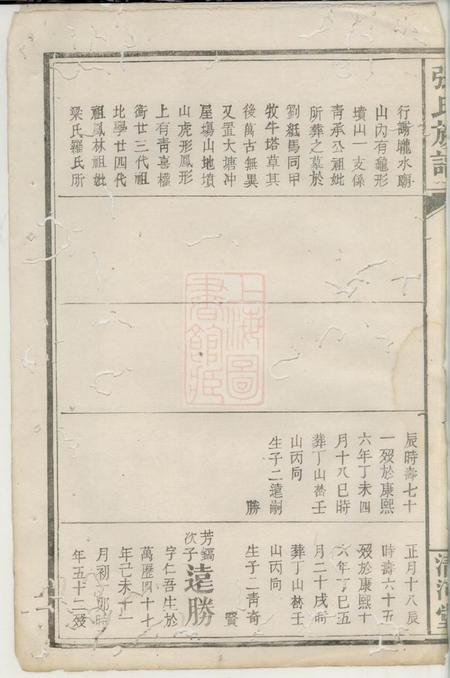 張氏族譜
清河堂
行譸隴水頭
山內有龜形
墳山一支係
青承公祖妣
所葬之墓於
劉紙馬同甲
牧牛塔草其
後萬古無異
又置大塘冲
屋塲山地墳
山虎形鳳形
上有青喜權
衛世三代祖
北學世四代
祖鳳林祖妣
梁氏羅氏所
辰時壽七十
一歿於康熙
六年丁未四
月十八巳時
葬丁山嵅壬
山丙向
生子二遠嗣
勝
正月十八辰
時壽六十五
歿於康熙十
六年丁巳五
月二十戌時
葬丁山嵅壬
山丙向
生子二青奇
賢
芳鎬次子遠勝
字仁吾生於
萬歷四十七
年己未十一
月初一卯時
年五十二歿
上海圖書館藏